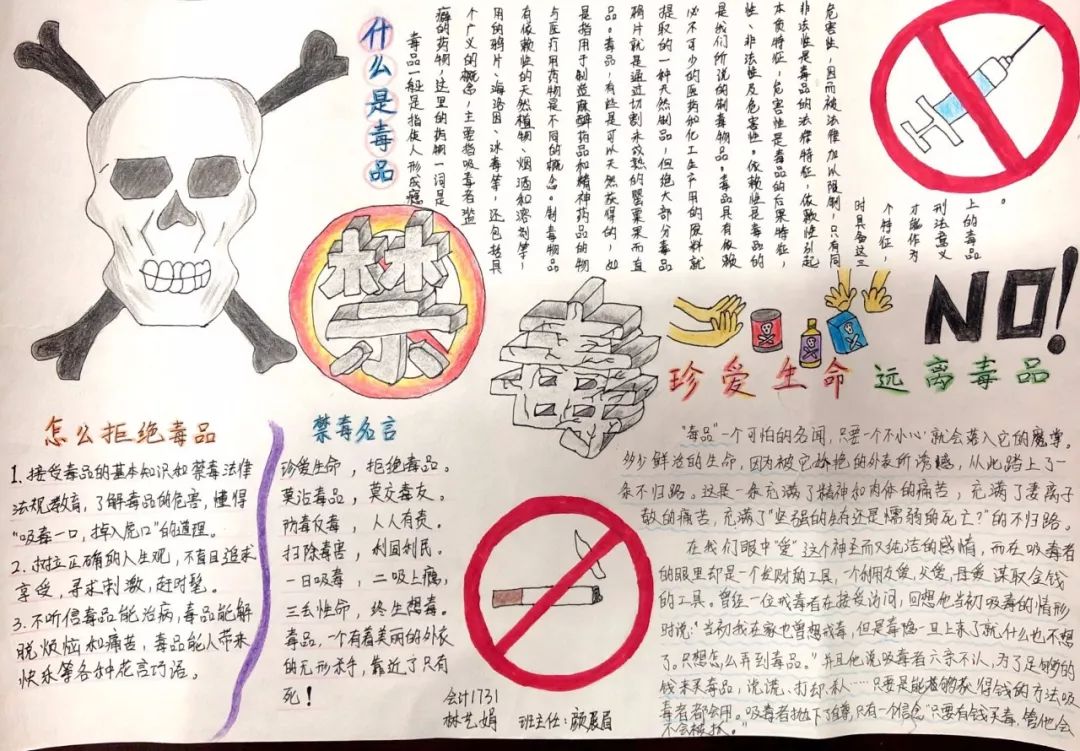 什么是毒品
毒品一般是指使人形成瘾
癖的药物，这里的药物一词是
个广义的概念，主要指吸毒者滥
用的鸦片、海洛因、冰毒等，还包括具
有依赖性的天然植物、烟酒和溶剂等，
与医疗用药物是不同的概念。制毒物品
是指用于制造麻醉药品和精神药品的物
品。毒品，有些是可以天然获得的，如
鸦片就是通过切割未成熟的罂粟果而直
提取的一种天然制品，但绝大部分毒品
必不可少的医药和化工生产用的原料就
是我们所说的制毒物品。毒品具有依赖
性、非法性及危害性。依赖性是毒品的
本质特征，危害性是毒品的后果特征，
非法性是毒品的法律特征，依赖性引起
危害性，因而被法律加以限制，只有同
时具备这三
个特征，
才能作为
刑法意义
上的毒品
。
禁
毒
NO!
珍爱生命 远离毒品
怎么拒绝毒品
1. 接受毒品的基本知识和禁毒法律
法规教育，了解毒品的危害，懂得
“吸毒一口，掉入虎口”的道理。
2. 树立正确的人生观，不盲目追求
享受，寻求刺激，赶时髦。
3. 不听信毒品能治病，毒品能解
脱烦恼和痛苦，毒品能人带来
快乐等各种花言巧语。
禁毒名言
珍爱生命，拒绝毒品。
莫沾毒品，莫交毒友。
防毒反毒，人人有责。
扫除毒害，利国利民。
一日吸毒，二吸上瘾，
三丢性命，终生想毒。
毒品，一个有着美丽的外衣
的无形杀手，靠近了只有
死！
会计1731
林艺娟 班主任：颜
“毒品”一个可怕的名词，只要一个不小心就会落入它的魔掌。
多少鲜活的生命，因为被它娇艳的外表所诱惑，从此踏上了一
条不归路。这是一条充满了精神和肉体的痛苦，充满了妻离子
散的痛苦，充满了“坚强的生存还是懦弱的死亡？”的不归路。
在我们眼中“爱”这个神圣而又纯洁的感情，而在吸毒者
的眼里却是一个捞财的工具，一个用友爱，父爱，母爱谋取金钱
的工具。曾经一位戒毒者在接受访问，回想他当初吸毒的情形
时说：“当初我在家也曾想戒毒，但是毒瘾一旦上来了就什么也不想
了。只想怎么弄到毒品。”并且他说吸毒者六亲不认，为了足够的
钱来买毒品，说谎、打劫、杀人……只要是能够获得钱的方法吸
毒者都会用。吸毒者抛下了自尊，只有一个信念“只要有钱买毒，管他会
不会被抓。”